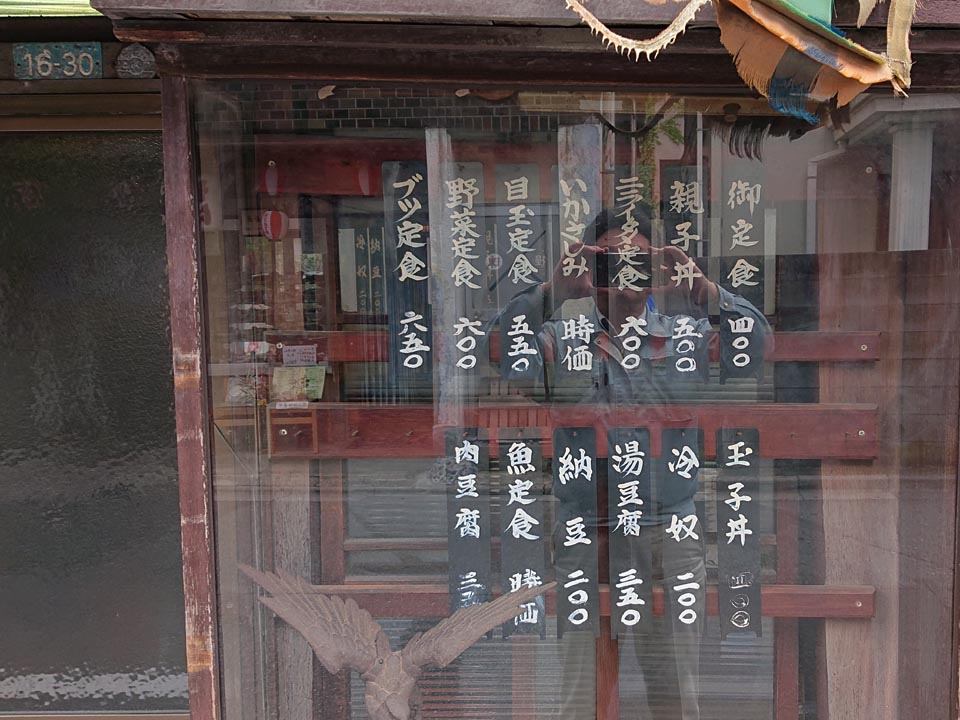 16-30
御定食 四〇〇
親子丼 五〇〇
ミライタ定食 六〇〇
いかさしみ 時価
目玉定食 五五〇
野菜定食 六〇〇
ブツ定食 六五〇
玉子丼 四〇〇
冷奴 二〇〇
湯豆腐 三五〇
納豆 二〇〇
魚定食 時価
肉豆腐
納豆